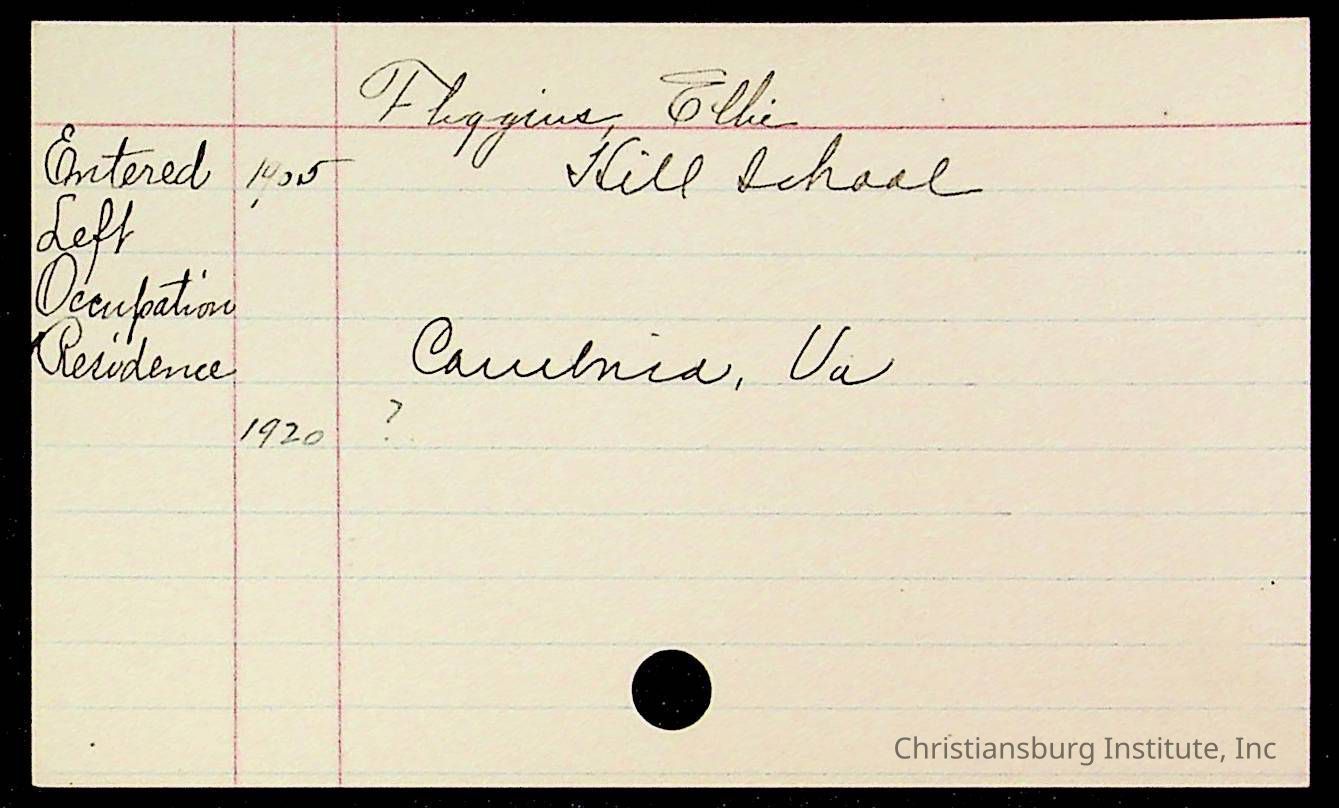 Fliggins, Ellie
Entered 1905 Hill School
Left
Occupation
Residence Cambria, Va
1920 ?
Christiansburg Institute, Inc